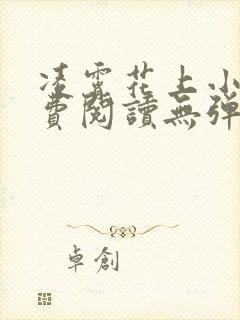 凌霄花上小
費閱讀無彈
卓創